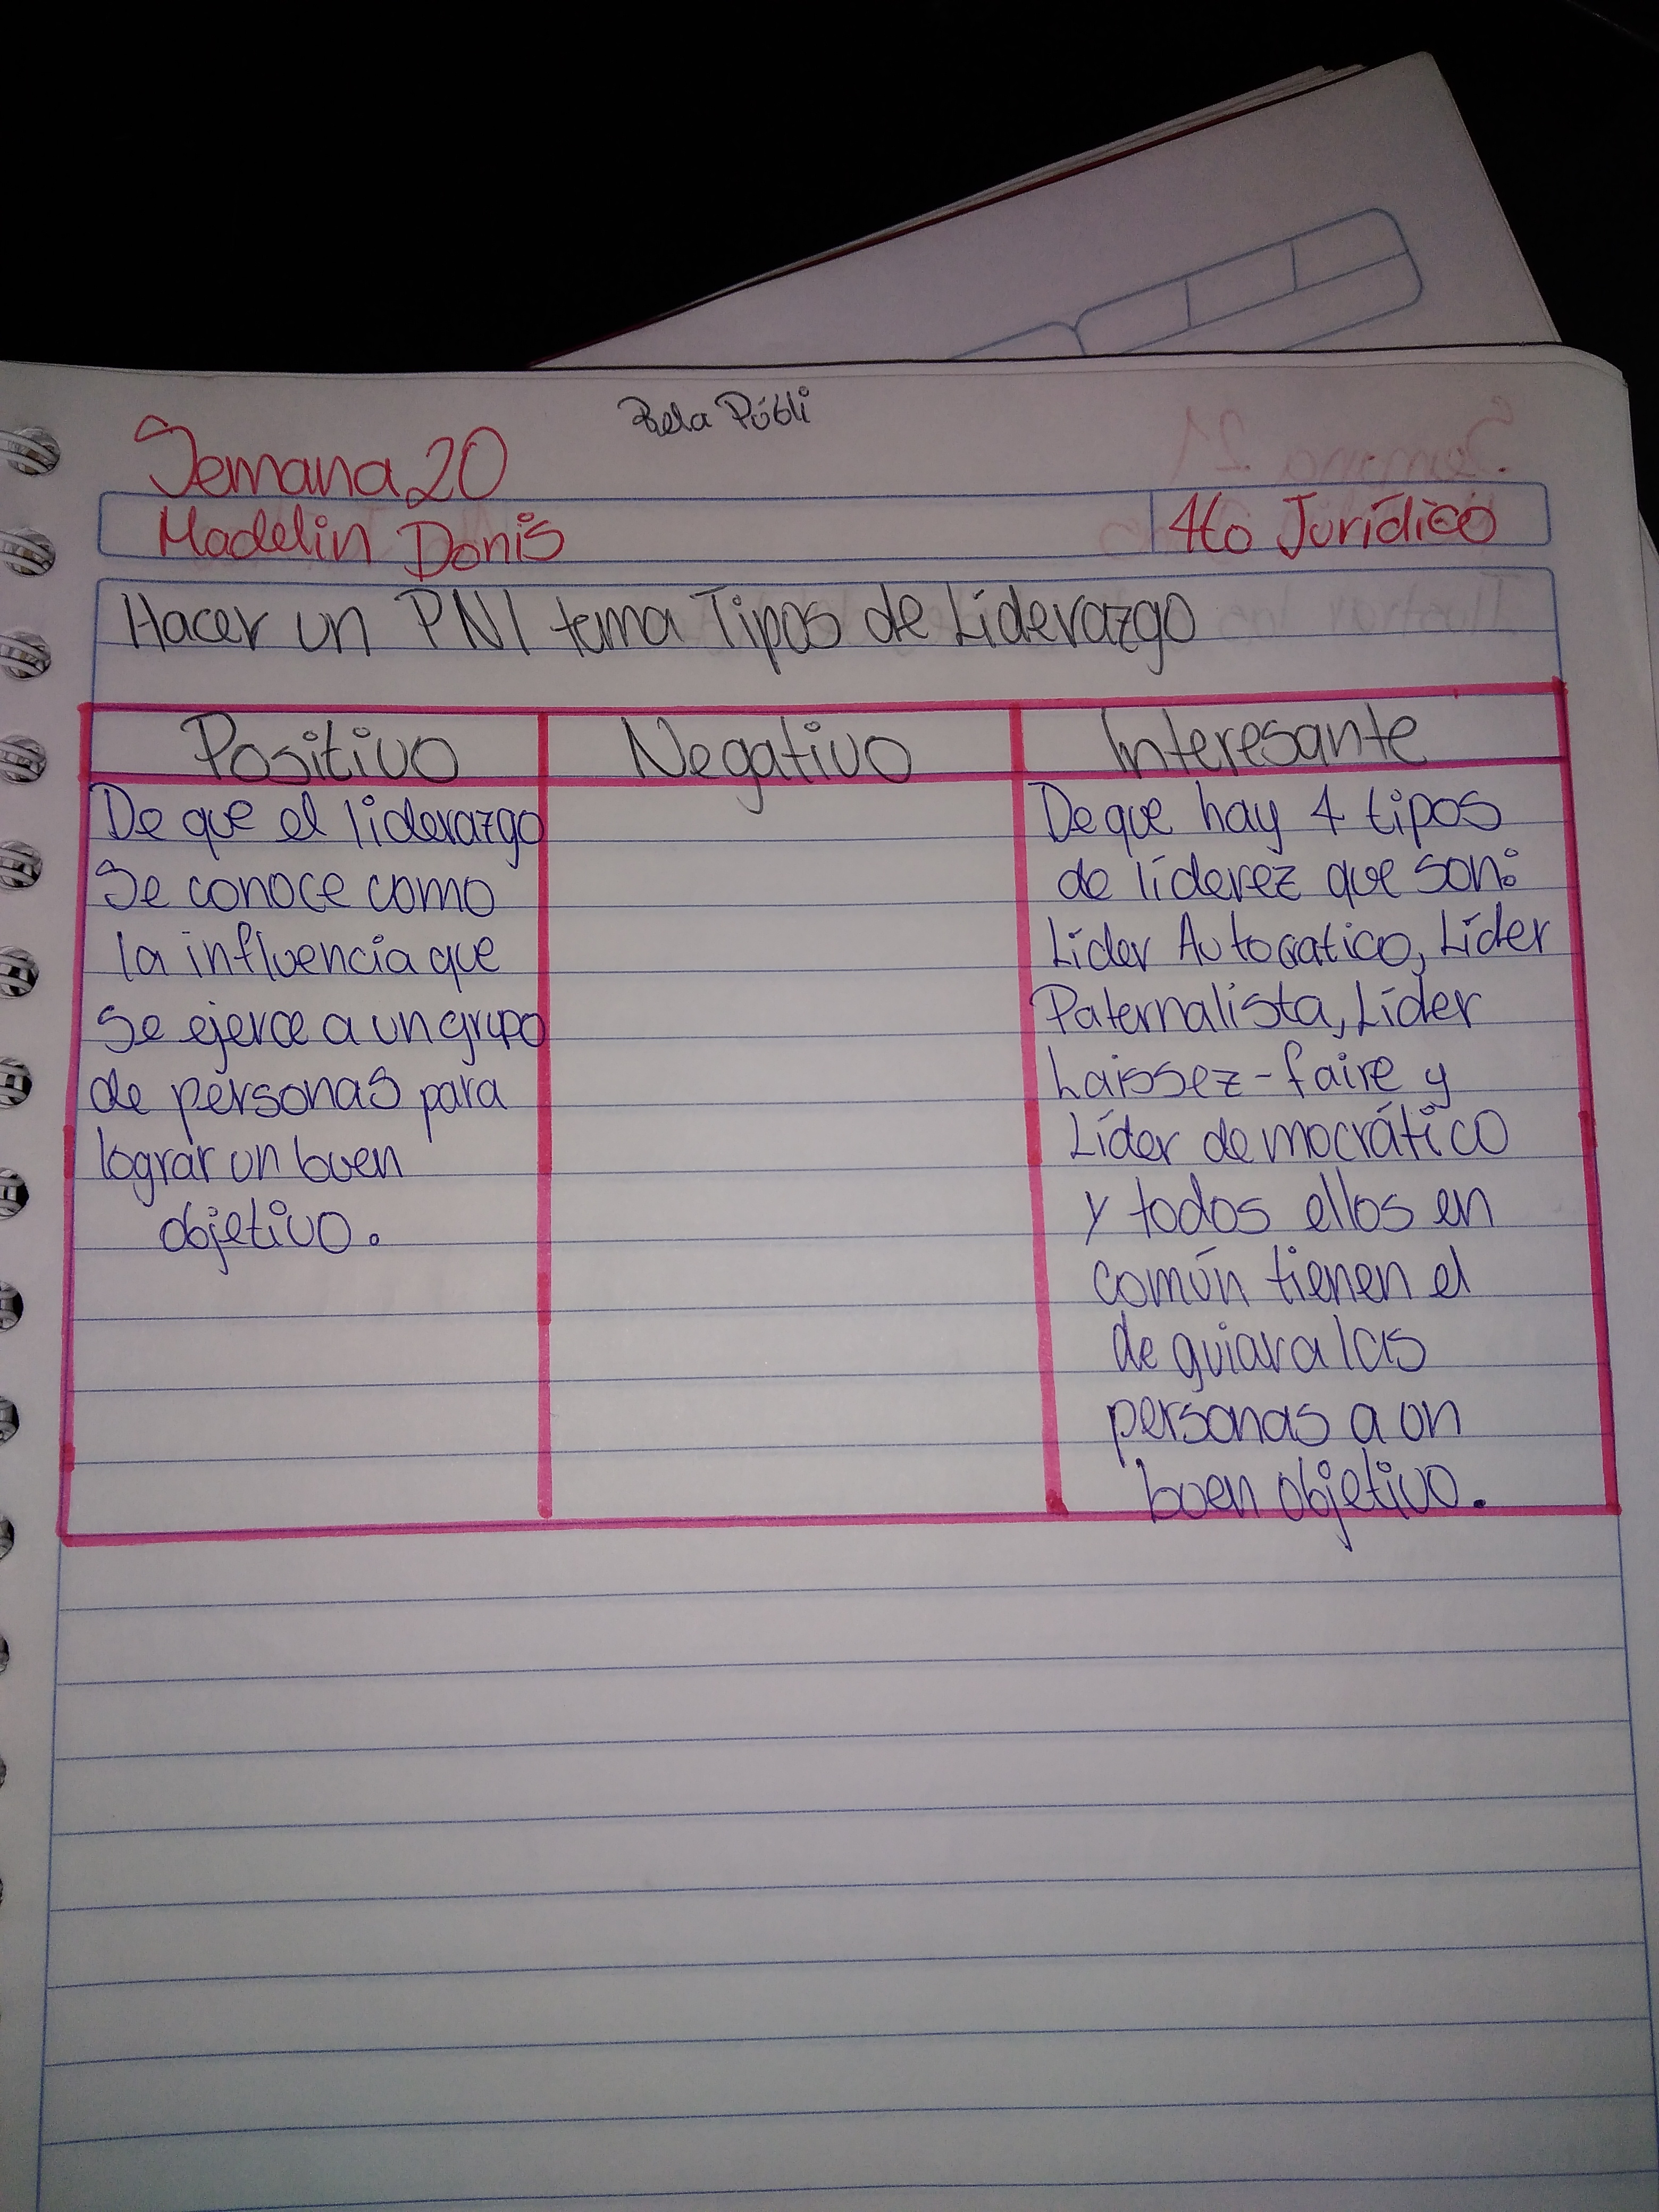 Rela Públi
Semana 20
Madelin Donis
4to Jurídico
Hacer un PNI tema Tipos de Liderazgo
Positivo
De que el liderazgo
Se conoce como
la influencia que
Se ejerce a un grupo
de personas para
lograr un buen
objetivo.
Negativo
Interesante
De que hay 4 tipos
de líderez que son:
Líder Autocratico, Líder
Paternalista, Líder
Laissez-faire y
Líder democrático
y todos ellos en
común tienen el
de guiar a las
personas a un
buen objetivo.
Semana 21